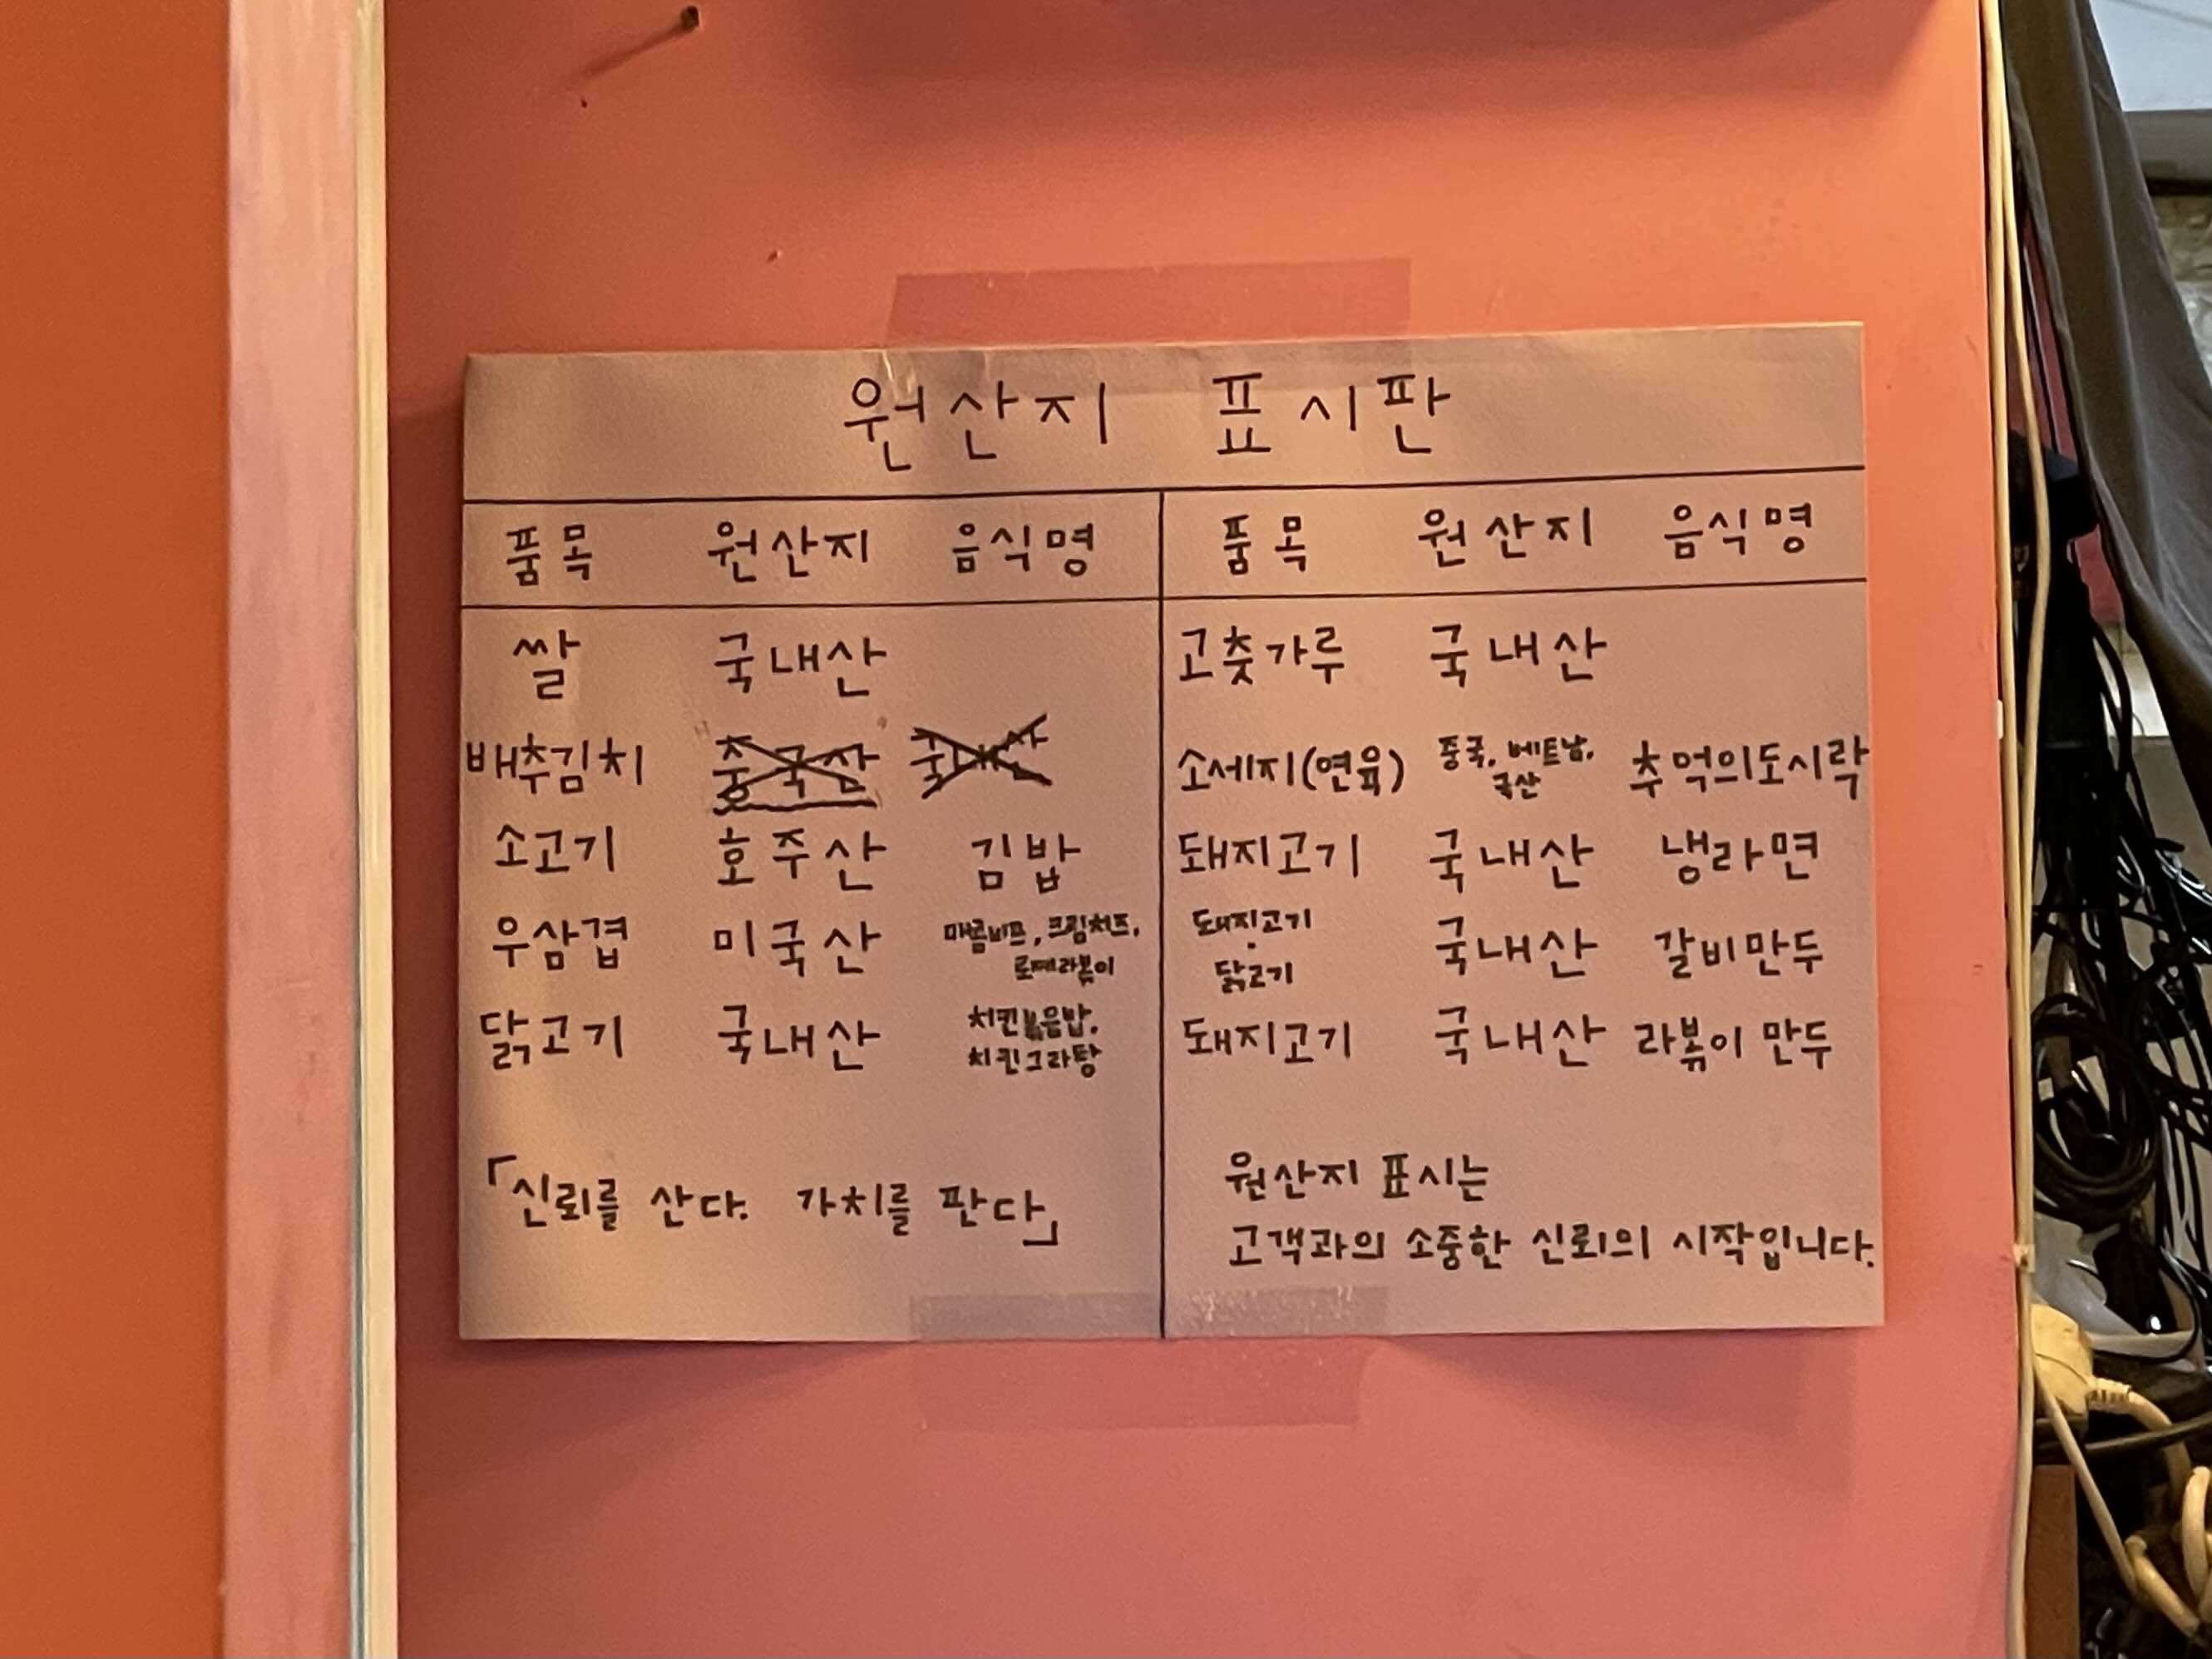 원산지 표시판
품목 원산지 음식명
쌀 국내산
배추김치 중국산 국내산
소고기 호주산 김밥
우삼겹 미국산 매콤비프, 크림치즈,
로제라볶이
닭고기 국내산 치킨볶음밥,
치킨그라탕
「신뢰를 산다. 가치를 판다」
품목 원산지 음식명
고춧가루 국내산
소세지(연육) 중국, 베트남, 추억의도시락
국산
돼지고기 국내산 냉라면
돼지고기
·
닭고기 국내산 갈비만두
돼지고기 국내산 라볶이 만두
원산지 표시는
고객과의 소중한 신뢰의 시작입니다.